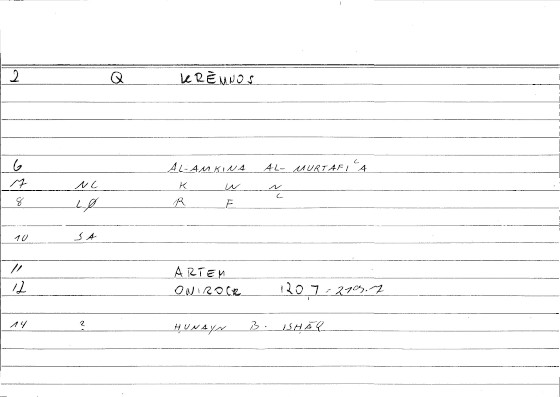 2 Q KRĒMNOS
6 AL-AMKINA AL-MURTAFIʿA
7 NC K W N
8 LØ R F ʿ
10 SA
11 ARTEM
12 ONIROCR 120,7 - 219,7
14 ? ḤUNAYN B. ISḤĀQ